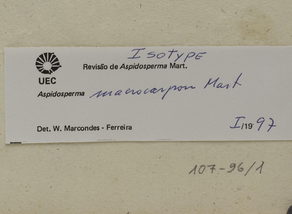 ISOTYPE
Revisão de Aspidosperma Mart.
UEC
Aspidosperma macrocarpon Mart
Det. W. Marcondes - Ferreira I/1997
107-96/1